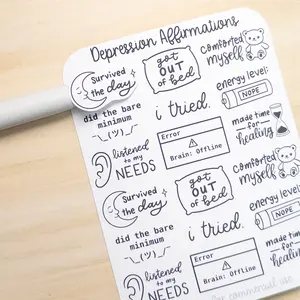 Depression Affirmations
Survived
the day
got
OUT
of bed
comforted
myself
did the bare
minimum
¯\_(ツ)_/¯
i tried.
energy level:
NOPE
listened
to my
NEEDS
Error
Brain: Offline
made time
for
healing
Survived
the day
got
OUT
of bed
comforted
myself
did the bare
minimum
¯\_(ツ)_/¯
i tried.
energy level:
NOPE
listened
to my
NEEDS
Error
Brain: Offline
made time
for
healing
for commercial use